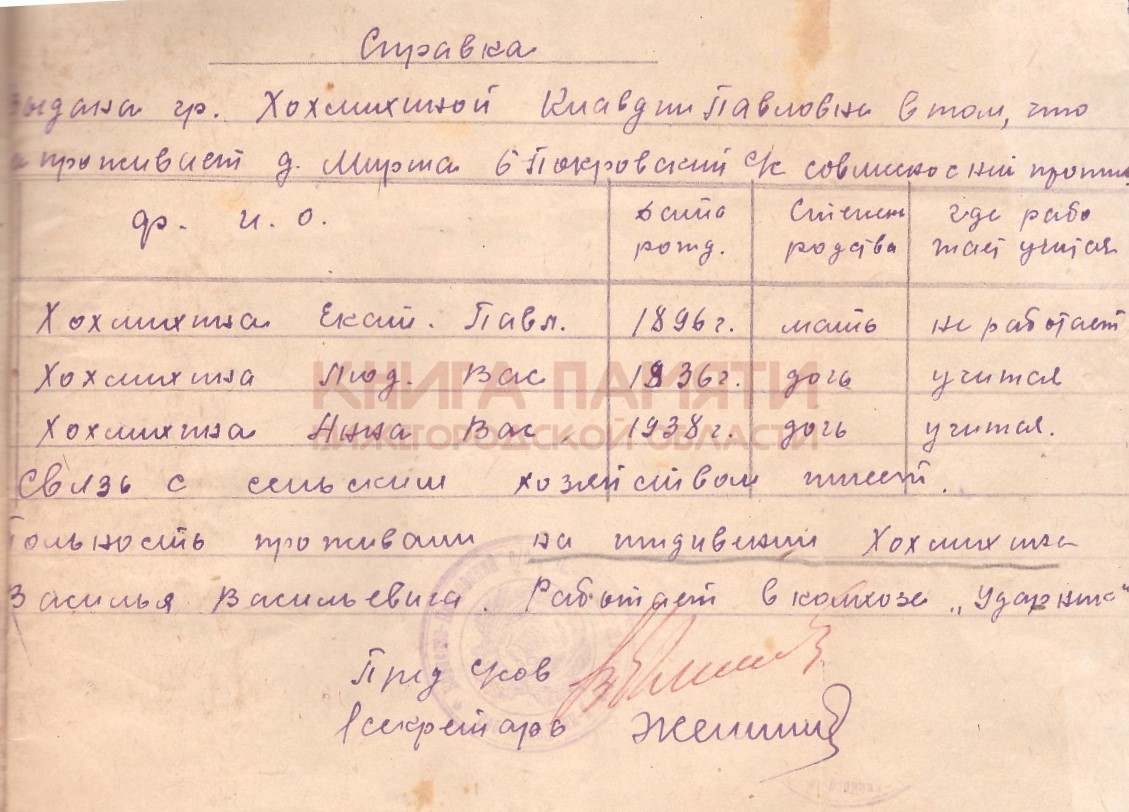 Справка
Выдана гр. Хохлихиной Клавдии Павловне в том, что
проживает д. Мирта Б Покровский с/с
ф. и. о. Дата рожд. Степень родства где рабо тает учится
Хохлихина Екат. Павл. 1896 г. мать не работает
Хохлихина Люд. Вас 1936 г. дочь учится
КНИГА ПАМЯТИ
Хохлихина Анна Вас 1938 г. дочь учится.
НИЖЕГОРОДСКОЙ ОБЛАСТИ
Связь с сельским хозяйством имеет.
проживали на иждивении Хохлихина
Василья Васильевича. Работает в колхозе „Ударник"
Пред с/сов
секретарь